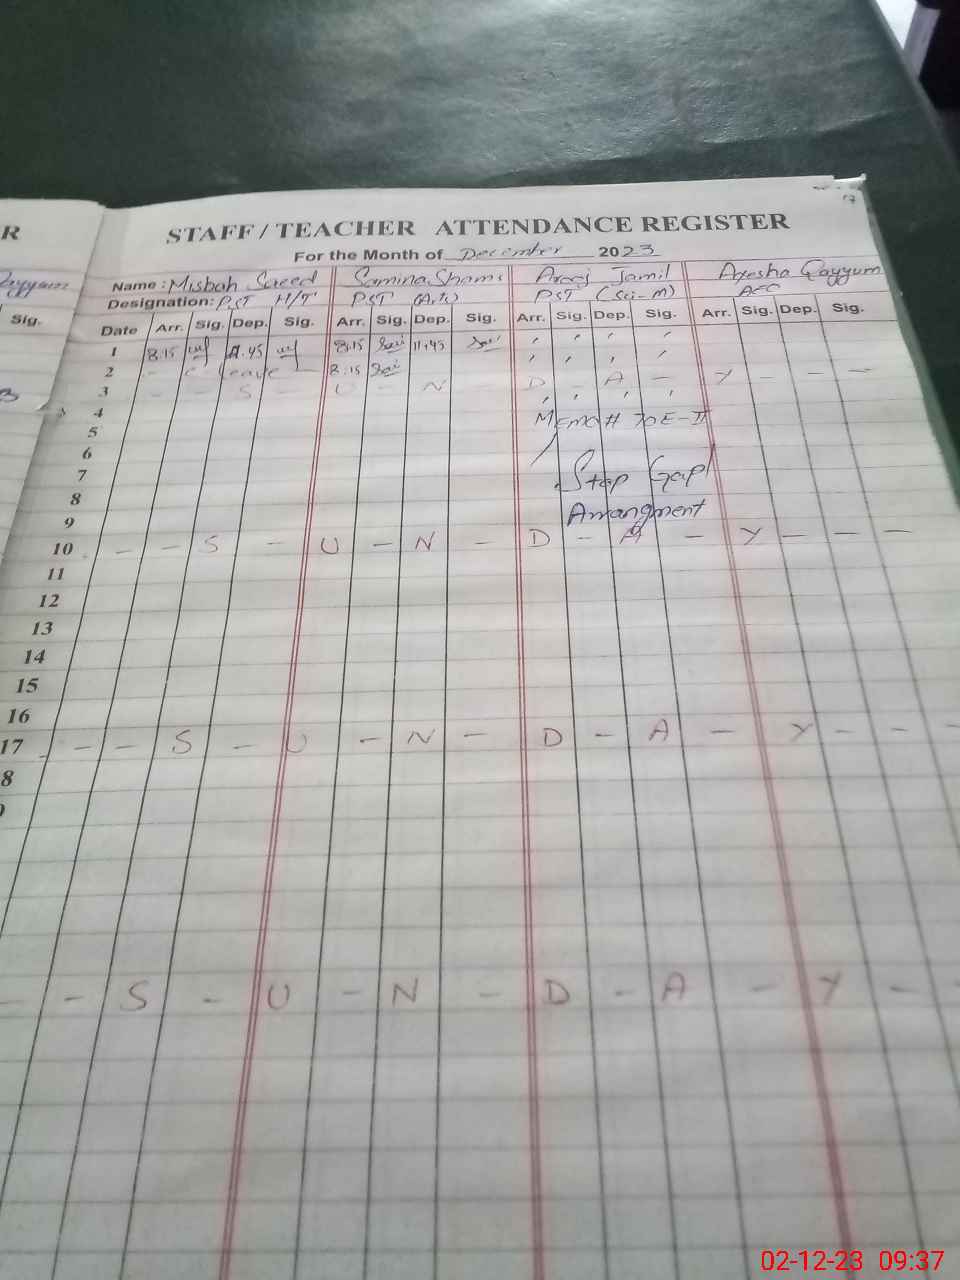 17
R
STAFF / TEACHER ATTENDANCE REGISTER
For the Month of December 2023
Qayyum
Name : Misbah Saeed Samina Shams Areej Jamil Ayesha Qayyum
Designation: PST H/T PST (Arts) PST (Sci-M) AEO
Sig.
Date Arr. Sig. Dep. Sig. Arr. Sig. Dep. Sig. Arr. Sig. Dep. Sig. Arr. Sig. Dep. Sig.
1 8.15 11.45 8.15 11.45
2 - C leave - 8:15
3 - - S - U - N - D - A - Y - - -
4
5 MEMO # 70 E-II
6
7 Stop Gap
8
9 Arrangment
10 - - S - U - N - D - A - Y - - -
11
12
13
14
15
16
17 - - S - U - N - D - A - Y - - -
8
- - S - U - N - D - A - Y - -
02-12-23 09:37